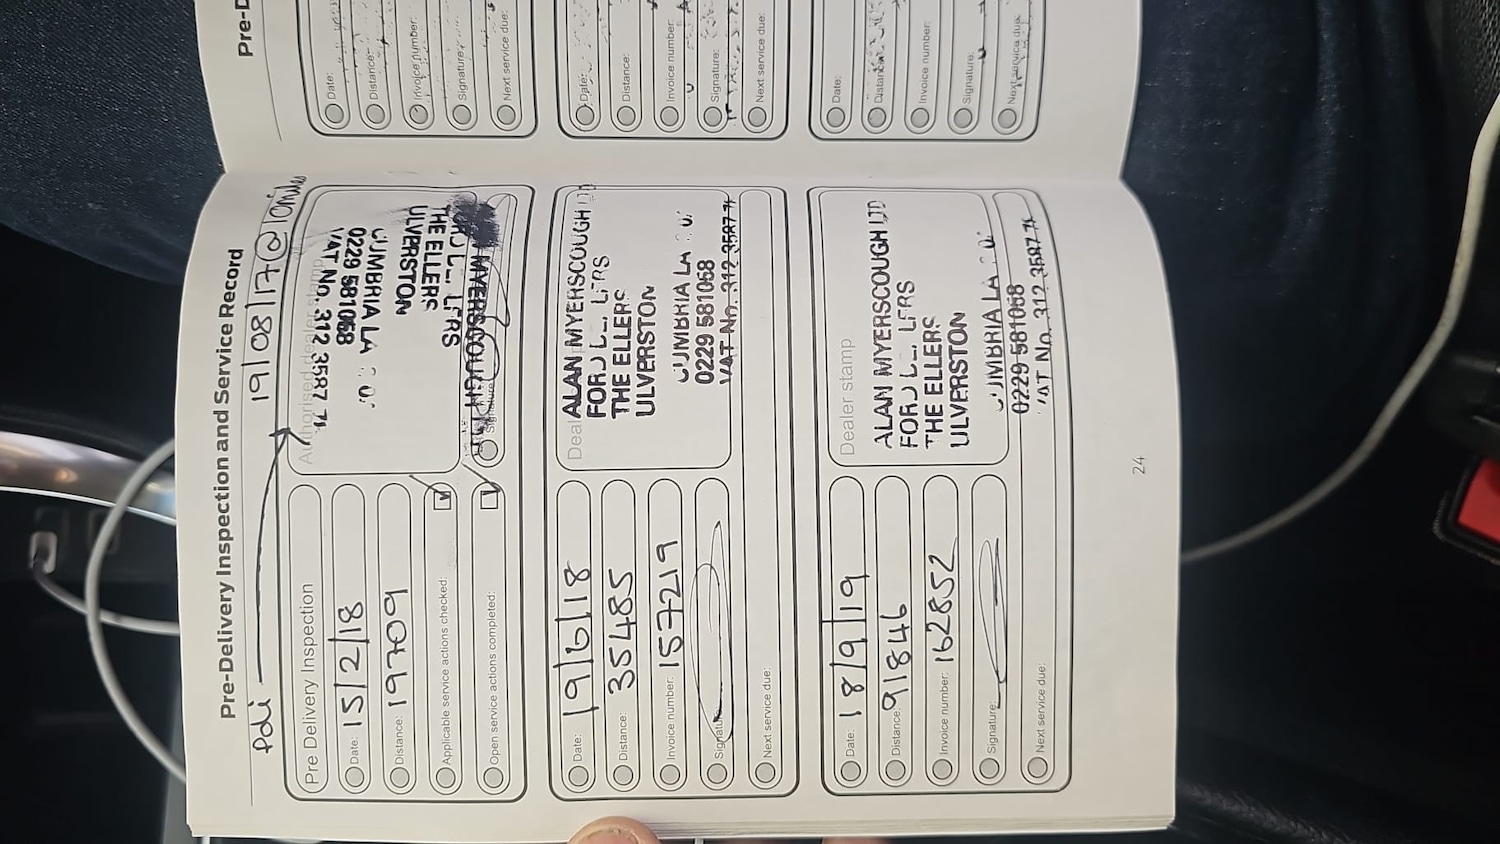 Pre-Delivery Inspection and Service Record
Pdi 19/08/17 @ 10miles
Pre Delivery Inspection
Date: 15/2/18
Distance: 19709
Applicable service actions checked:
Open service actions completed:
Authorised dealer stamp
VAT No. 312 3587 71
0229 581068
CUMBRIA LA
ULVERSTON
THE ELLERS
MYERSCOUGH
Signature
Date: 19/6/18
Distance: 35485
Invoice number: 157219
Signature:
Next service due:
Deal
ALAN MYERSCOUGH LTD
THE ELLERS
ULVERSTON
CUMBRIA LA
0229 581068
VAT No. 312 3587 71
Date: 18/9/19
Distance: 91846
Invoice number: 162852
Signature:
Next service due:
Dealer stamp
ALAN MYERSCOUGH LTD
THE ELLERS
ULVERSTON
CUMBRIA LA
0229 581068
VAT No. 312 3587 71
24
Pre-D
Date:
Distance:
Invoice number:
Signature:
Next service due:
Date:
Distance:
Invoice number:
Signature:
Next service due:
Date:
Distance:
Invoice number:
Signature:
Next service due: